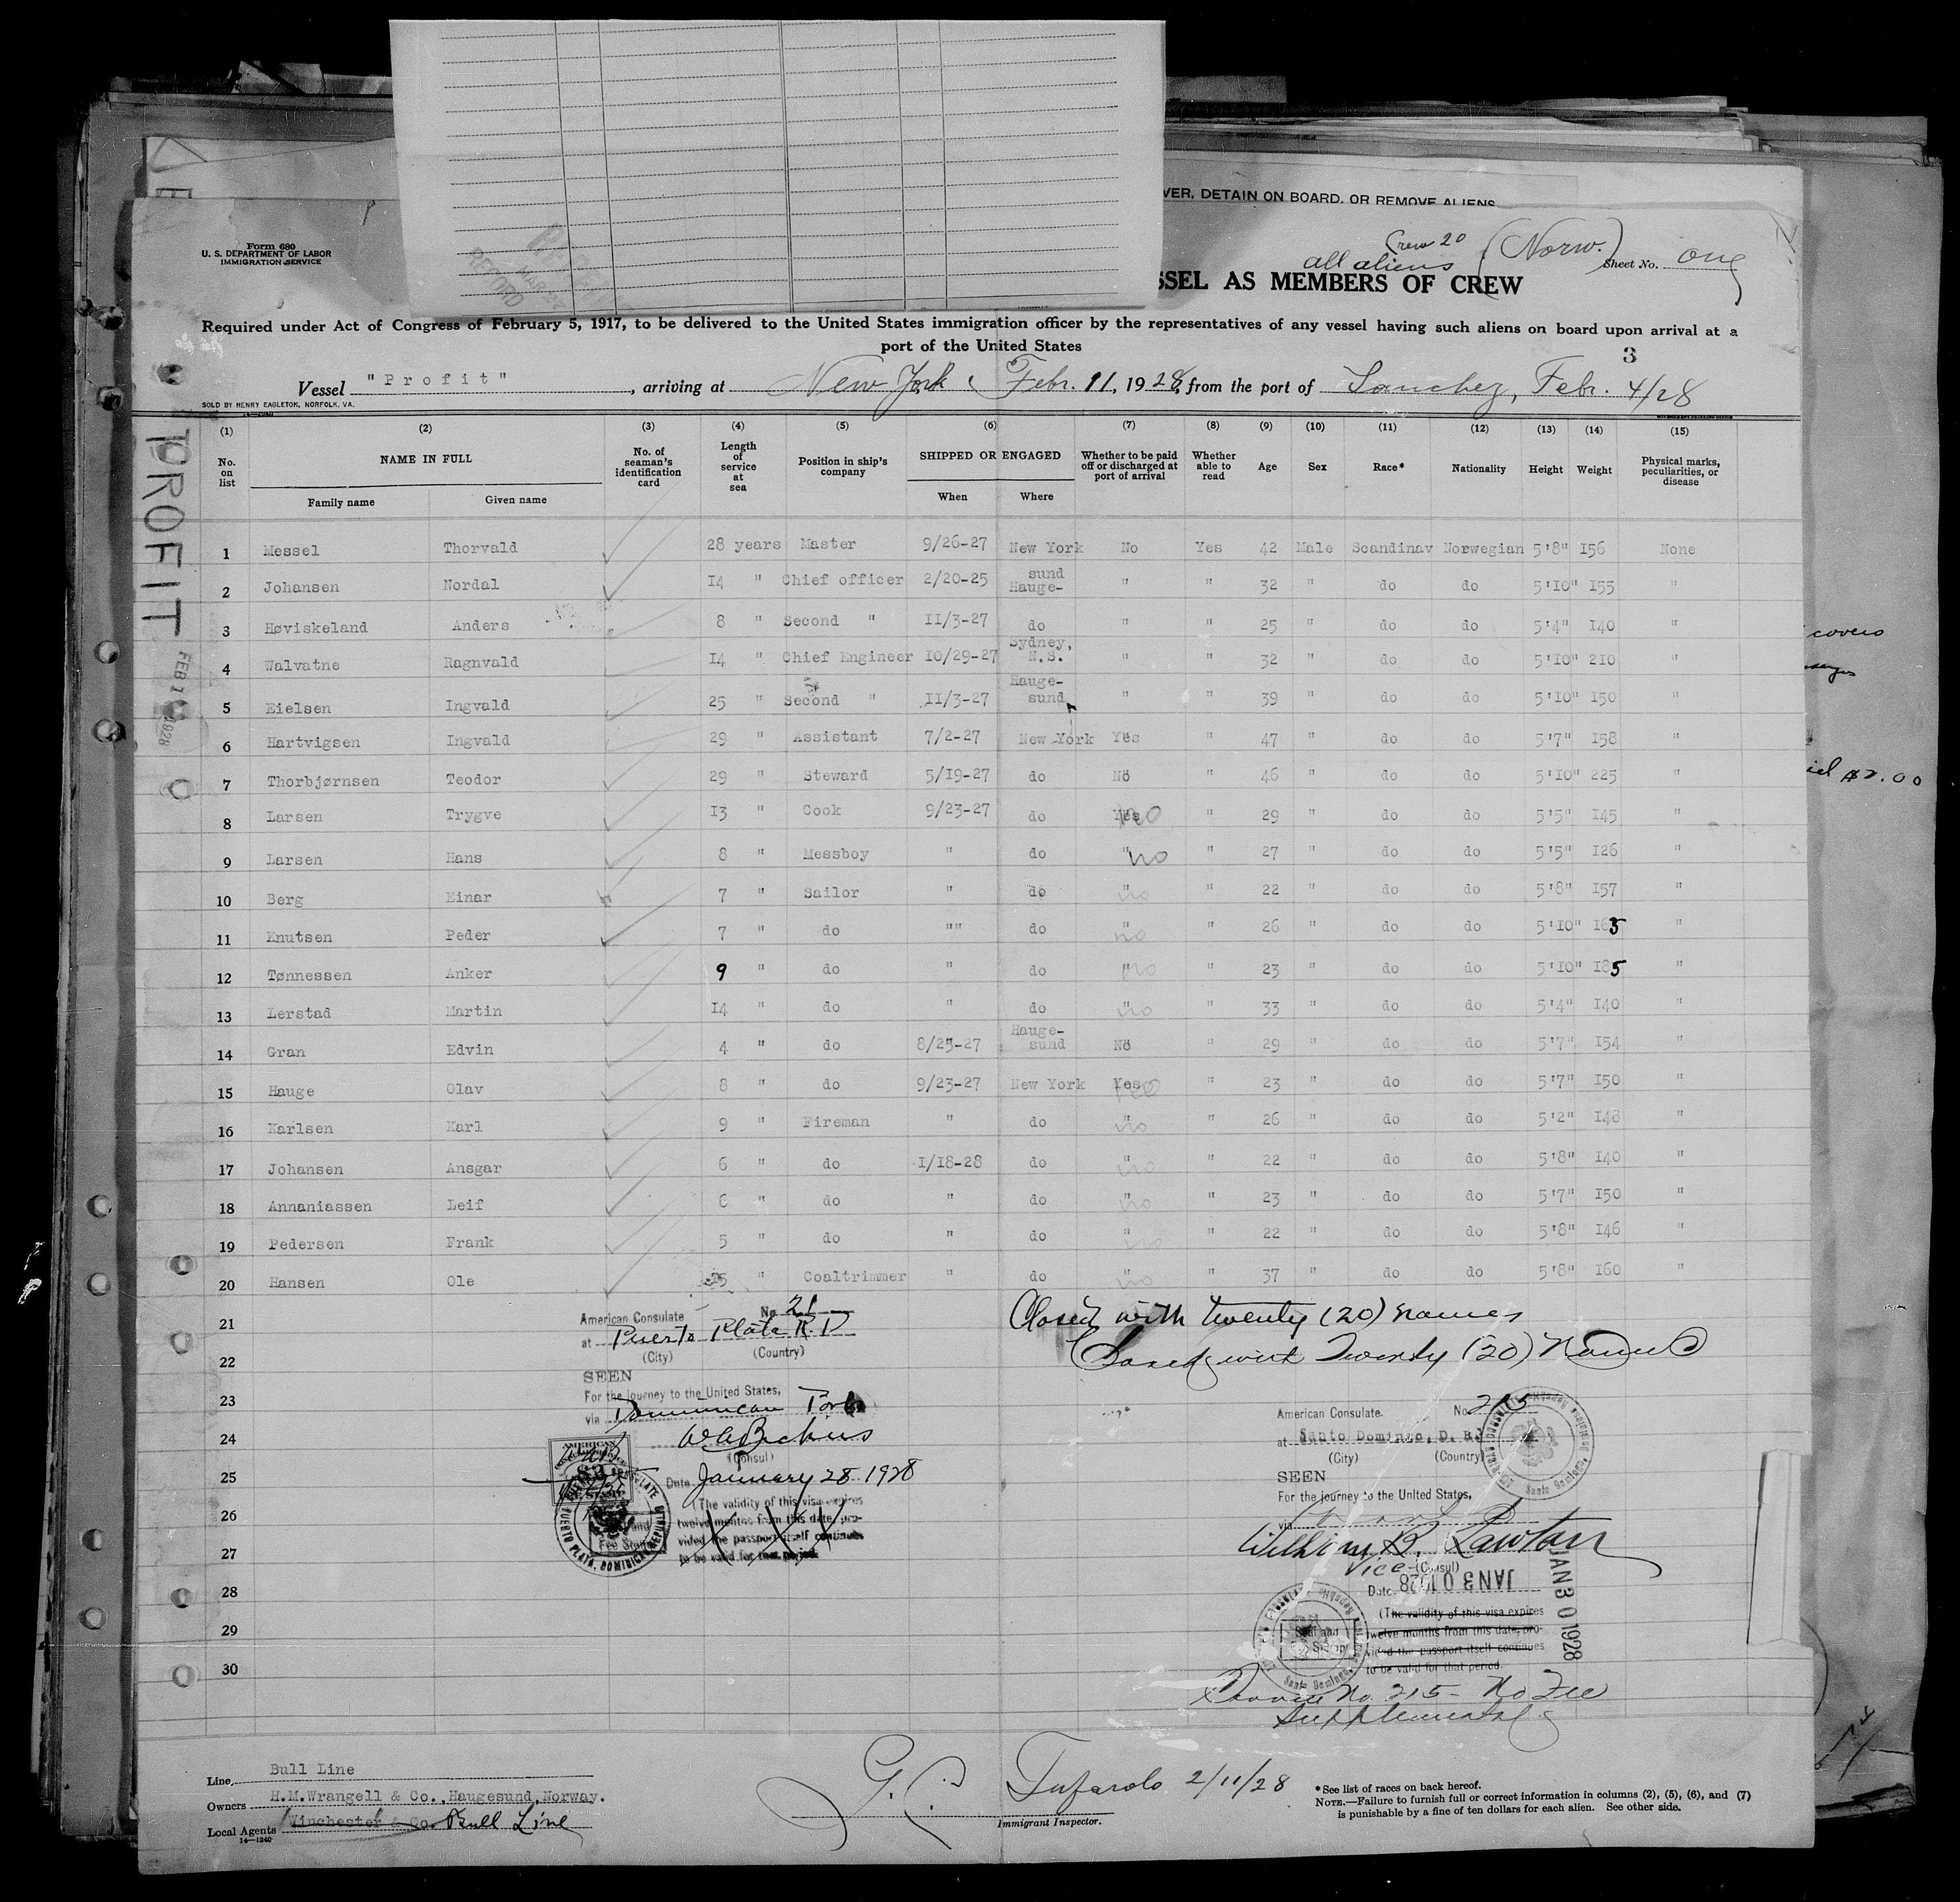 VER, DETAIN ON BOARD, OR REMOVE ALIENS
Form 680
U. S. DEPARTMENT OF LABOR
IMMIGRATION SERVICE
RECORD
MAR 22
Crew 20
all aliens
(Norw.)
Sheet No. one
SSEL AS MEMBERS OF CREW
Required under Act of Congress of February 5, 1917, to be delivered to the United States immigration officer by the representatives of any vessel having such aliens on board upon arrival at a
port of the United States
3
Vessel "Profit", arriving at New York, Febr. 11, 1928, from the port of Sanchez, Febr. 4/28
SOLD BY HENRY EAGLETON, NORFOLK, VA.
14—1240
PROFIT
FEB 1 1928
(1) (2) (3) (4) (5) (6) (7) (8) (9) (10) (11) (12) (13) (14) (15)
No. on list
NAME IN FULL
Family name
Given name
No. of seaman's identification card
Length of service at sea
Position in ship's company
SHIPPED OR ENGAGED
When
Where
Whether to be paid off or discharged at port of arrival
Whether able to read
Age
Sex
Race*
Nationality
Height
Weight
Physical marks, peculiarities, or disease
1 Messel Thorvald 28 years Master 9/26-27 New York No Yes 42 Male Scandinav Norwegian 5'8" 156 None
2 Johansen Nordal 14 " Chief officer 2/20-25 Hauge-sund " " 32 " do do 5'10" 155 "
3 Høviskeland Anders 8 " Second " 11/3-27 do " " 25 " do do 5'4" 140 "
4 Walvatne Ragnvald 14 " Chief Engineer 10/29-27 Sydney, N.S. " " 32 " do do 5'10" 210 "
5 Eielsen Ingvald 25 " Second " 11/3-27 Hauge-sund " " 39 " do do 5'10" 150 "
6 Hartvigsen Ingvald 29 " Assistant 7/2-27 New York Yes " 47 " do do 5'7" 158 "
7 Thorbjørnsen Teodor 29 " Steward 5/19-27 do No " 46 " do do 5'10" 225 "
8 Larsen Trygve 13 " Cook 9/23-27 do Yes no " 29 " do do 5'5" 145 "
9 Larsen Hans 8 " Messboy " do " no " 27 " do do 5'5" 126 "
10 Berg Einar 7 " Sailor " do " no " 22 " do do 5'8" 157 "
11 Knutsen Peder 7 " do "" do " no " 26 " do do 5'10" 165 "
12 Tønnessen Anker 9 " do " do " no " 23 " do do 5'10" 185 "
13 Lerstad Martin 14 " do " do " no " 33 " do do 5'4" 140 "
14 Gran Edvin 4 " do 8/25-27 Hauge-sund No " 29 " do do 5'7" 154 "
15 Hauge Olav 8 " do 9/23-27 New York Yes no " 23 " do do 5'7" 150 "
16 Karlsen Karl 9 " Fireman " do " no " 26 " do do 5'2" 148 "
17 Johansen Ansgar 6 " do 1/18-28 do " no " 22 " do do 5'8" 140 "
18 Annaniassen Leif 6 " do " do " no " 23 " do do 5'7" 150 "
19 Pedersen Frank 5 " do " do " no " 22 " do do 5'8" 146 "
20 Hansen Ole 15 " Coaltrimmer " do " no " 37 " do do 5'8" 160 "
21
22
23
24
25
26
27
28
29
30
American Consulate No. 21
at Puerto Plata R.D
(City) (Country)
SEEN
For the journey to the United States,
via Dominican Ports
(Consul)
Date January 28 1928
(The validity of this visa expires
twelve months from this date, pro-
vided the passport itself continues
to be valid for that period.
PUERTO PLATA, DOMINICAN REPUBLIC
Closed with twenty (20) names
Closed with Twenty (20) Names
American Consulate. No. 215
at Santo Domingo, D. R.
(City) (Country)
SEEN
For the journey to the United States,
via
William B. Lawton
Vice (Consul)
Date JAN 30 1928
JAN 30 1928
(The validity of this visa expires
twelve months from this date, pro-
vided the passport itself continues
to be valid for that period.
Service No. 215 - No Fee
Supplemental
Line, Bull Line
Owners H.M.Wrangell & Co., Haugesund, Norway.
Local Agents Winchester & Co. Bull Line
14—1240
G. C. Tufarolo 2/11/28
Immigrant Inspector.
*See list of races on back hereof.
NOTE.—Failure to furnish full or correct information in columns (2), (5), (6), and (7)
is punishable by a fine of ten dollars for each alien. See other side.
covers
$2.00